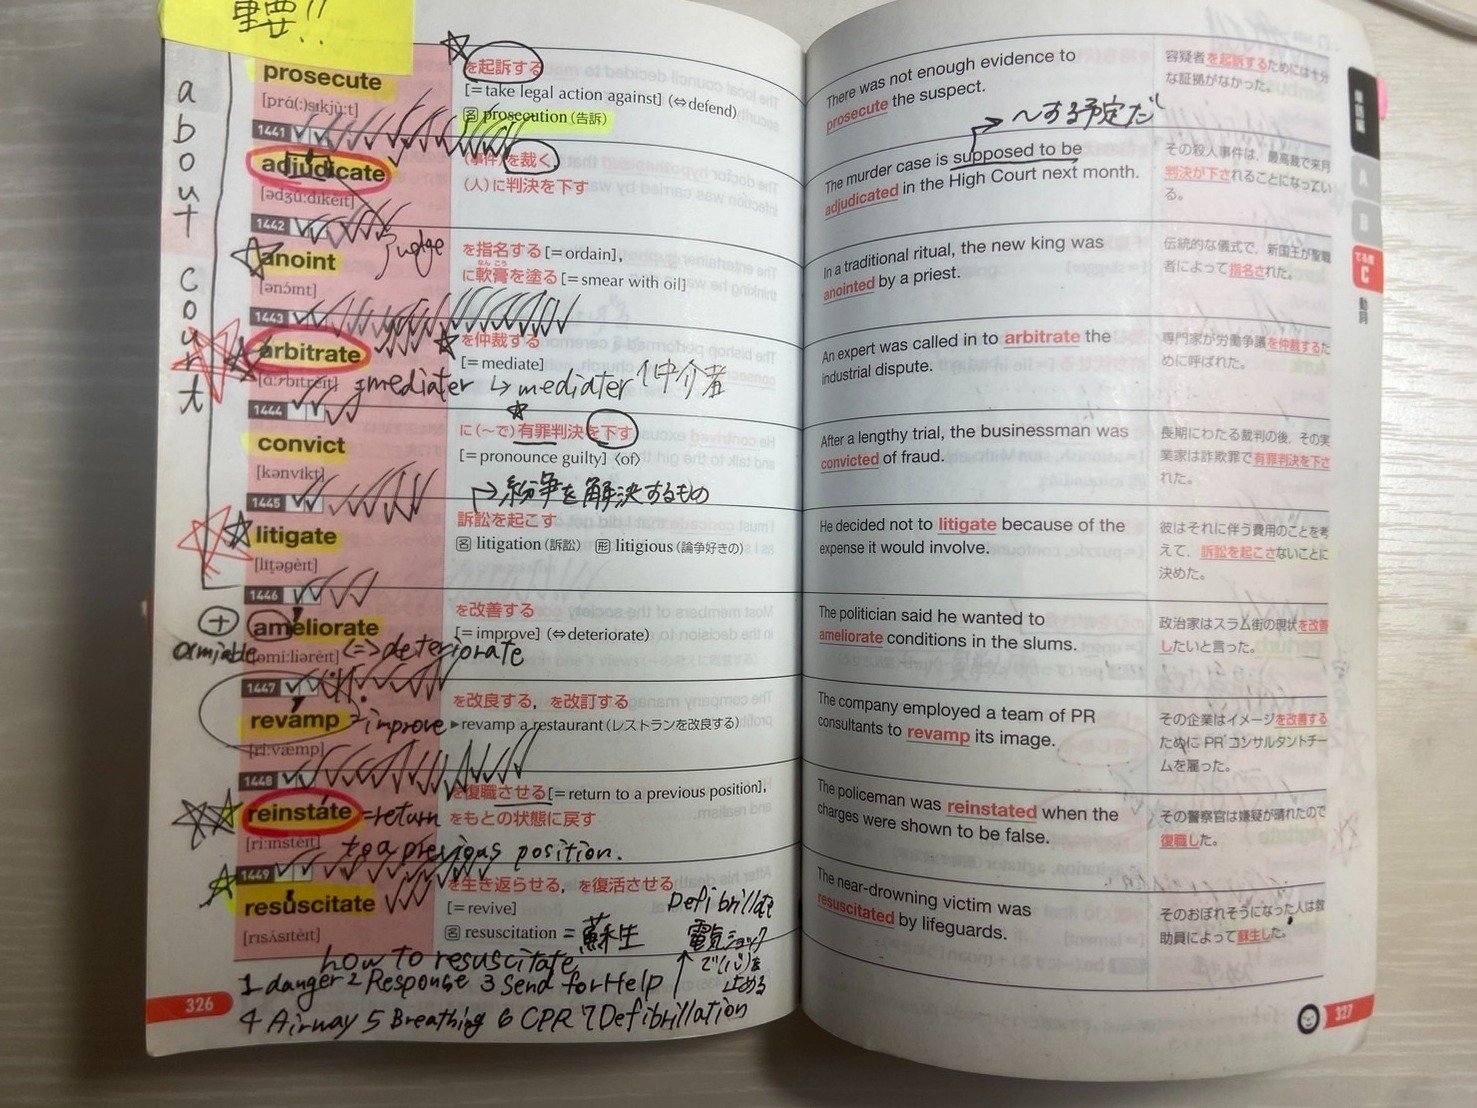 重要!!
about court
prosecute
[prɑ́(ː)sɪkjùːt]
を起訴する
[= take legal action against] (⇔ defend)
名 prosecution (告訴)
1441
adjudicate
[ədʒúːdɪkèɪt]
judge
(事件)を裁く
(人)に判決を下す
1442
anoint
[ənɔ́ɪnt]
を指名する [= ordain],
なんこう
に軟膏を塗る [= smear with oil]
1443
arbitrate
[ɑ́ːrbɪtrèɪt]
を仲裁する
[= mediate]
=mediater ↳ mediater 仲介者
1444
convict
[kənvíkt]
に(〜で)有罪判決を下す
[= pronounce guilty] 〈of〉
→紛争を解決するもの
1445
litigate
[lítəgèɪt]
訴訟を起こす
名 litigation (訴訟) 形 litigious (論争好きの)
1446
ameliorate
[əmíːliərèɪt]
を改善する
[= improve] (⇔ deteriorate)
+
<=> deteriorate
1447
revamp
[rìːvǽmp]
=improve
を改良する，を改訂する
▶ revamp a restaurant (レストランを改良する)
1448
reinstate
[rìːɪnstéɪt]
を復職させる [= return to a previous position],
をもとの状態に戻す
=return
to a previous position.
1449
resuscitate
[rɪsʌ́sɪtèɪt]
を生き返らせる，を復活させる
[= revive]
名 resuscitation
= 蘇生
Defibrillate
電気ショック
で(心)を
止める
how to resuscitate
1 danger 2 Response 3 Send for Help
4 Airway 5 Breathing 6 CPR 7 Defibrillation
326
There was not enough evidence to
prosecute the suspect.
容疑者を起訴するためには十分
な証拠がなかった。
→ 〜する予定だ
The murder case is supposed to be
adjudicated in the High Court next month.
その殺人事件は、最高裁で来月
判決が下されることになってい
る。
In a traditional ritual, the new king was
anointed by a priest.
伝統的な儀式で、新国王が聖職
者によって指名された。
An expert was called in to arbitrate the
industrial dispute.
専門家が労働争議を仲裁するた
めに呼ばれた。
After a lengthy trial, the businessman was
convicted of fraud.
長期にわたる裁判の後、その実
業家は詐欺罪で有罪判決を下さ
れた。
He decided not to litigate because of the
expense it would involve.
彼はそれに伴う費用のことを考
えて、訴訟を起こさないことに
決めた。
The politician said he wanted to
ameliorate conditions in the slums.
政治家はスラム街の現状を改善
したいと言った。
The company employed a team of PR
consultants to revamp its image.
その企業はイメージを改善する
ために PR コンサルタントチー
ムを雇った。
The policeman was reinstated when the
charges were shown to be false.
その警察官は嫌疑が晴れたので
復職した。
The near-drowning victim was
resuscitated by lifeguards.
そのおぼれそうになった人は救
助員によって蘇生した。
単語編
A
B
でる度
C
動詞
327